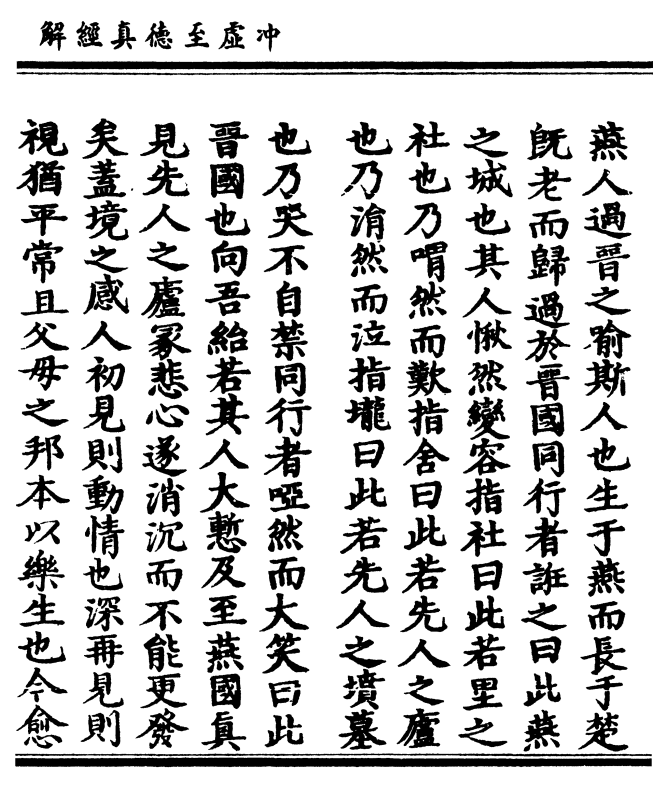 冲虛至德真經解
燕人過晉之喻斯人也生于燕而長于楚
既老而歸過於晉國同行者誑之曰此燕
之城也其人愀然變容指社曰此若里之
社也乃喟然而歎指舍曰此若先人之廬
也乃涓然而泣指壠曰此若先人之墳墓
也乃哭不自禁同行者啞然而大笑曰此
晉國也向吾紿若其人大慙及至燕國真
見先人之廬冢悲心遂消沉而不能更發
矣蓋境之感人初見則動情也深再見則
視猶平常且父母之邦本以樂生也今愈